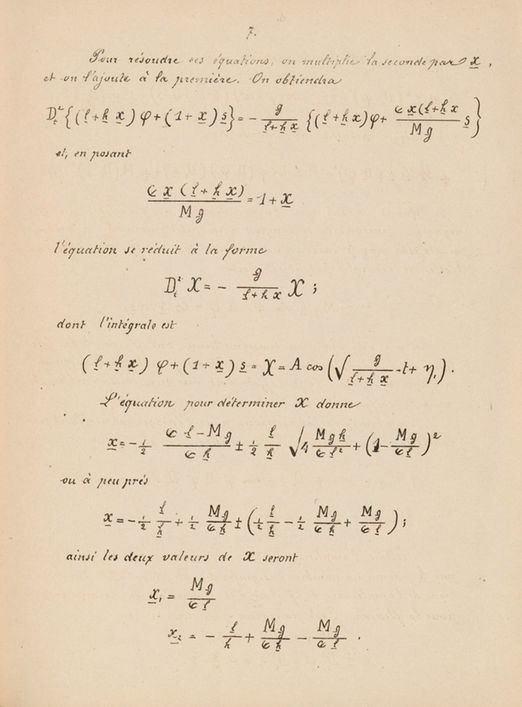 7.
Pour résoudre ces équations, on multiplie la seconde par x,
et on l'ajoute à la première. On obtiendra
D_t^2 {(l+h x) φ + (1+x) s} = - g/(l+h x) {(l+h x) φ + ε x (l+h x/Mg s}
et, en posant
ε x (l+h x)/Mg = 1 + x
l'équation se réduit à la forme
D_t^2 X = - g/(l+h x) X ;
dont l'intégrale est
(l+h x) φ + (1+x) s = X = A cos (√(g/(l+h x)) · t + η,) .
L'équation pour déterminer X donne
x = - 1/2 (ε l - Mg)/(ε h) ± 1/2 l/h √(4 Mgh/(ε l^2) + (1 - Mg/(ε l))^2)
ou à peu près
x = - 1/2 l/h + 1/2 Mg/(ε h) ± (1/2 l/h - 1/2 Mg/(ε h) + Mg/(ε l)) ;
ainsi les deux valeurs de X seront
x_1 = Mg/(ε l)
x_2 = - l/h + Mg/(ε h) - Mg/(ε l) .